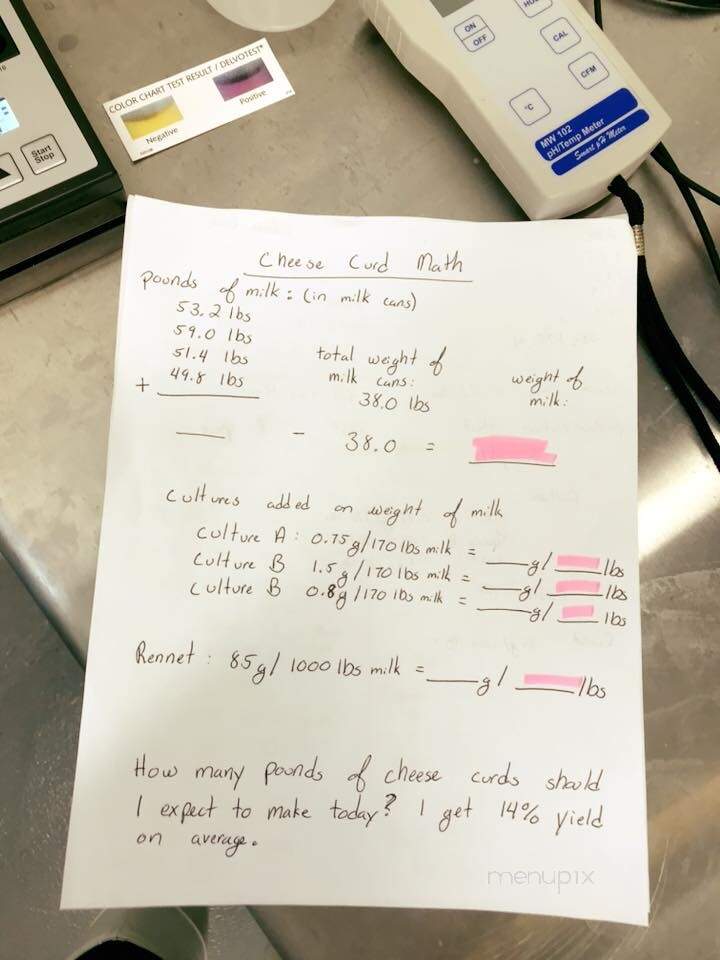 ON
OFF
CAL
CFM
°C
MW 102
pH/Temp Meter
Smart pH Meter
COLOR CHART TEST RESULT / DELVOTEST®
Negative
Positive
Start
Stop
Cheese Curd Math
pounds of milk: (in milk cans)
53.2 lbs
59.0 lbs
51.4 lbs
+ 49.8 lbs
total weight of
milk cans:
38.0 lbs
weight of
milk:
___ - 38.0 = ___
Cultures added on weight of milk
Culture A: 0.75g/170 lbs milk = ___g/ ___ lbs
Culture B 1.5g/170 lbs milk = ___g/ ___ lbs
Culture B 0.8g/170 lbs milk = ___g/ ___ lbs
Rennet: 85g/1000 lbs milk = ___g/ ___ lbs
How many pounds of cheese curds should
I expect to make today? I get 14% yield
on average.
menupix